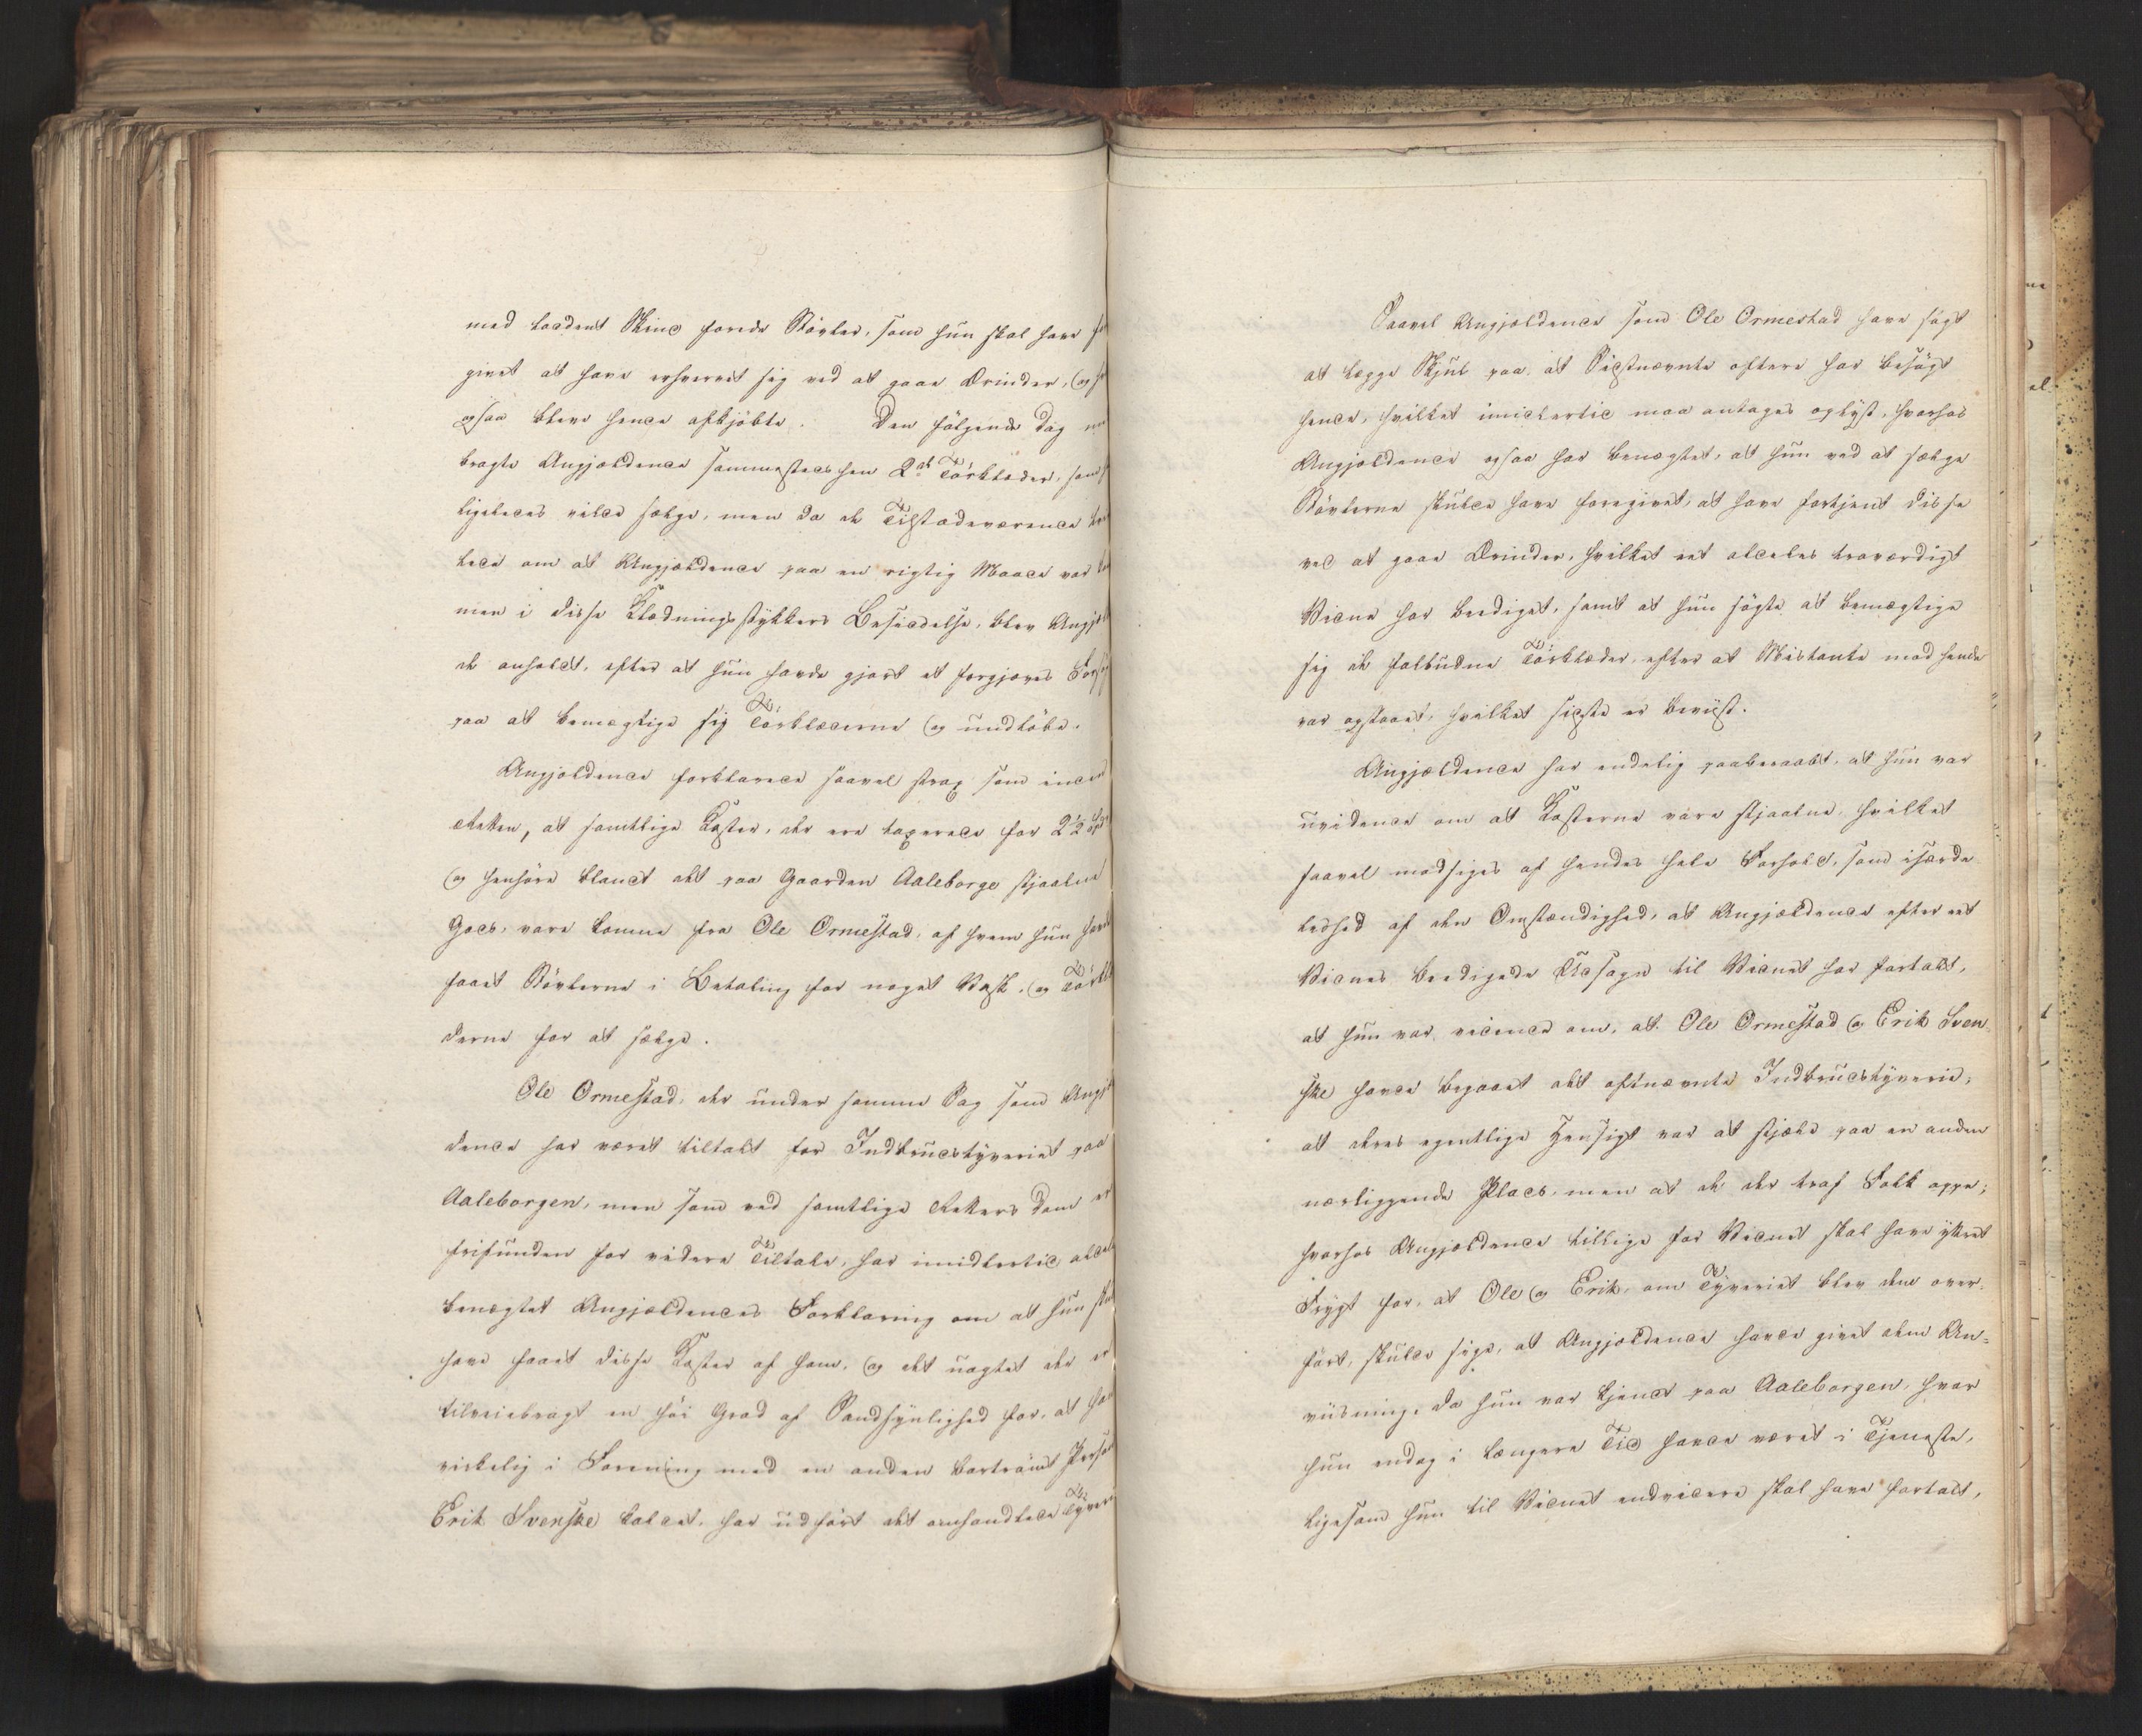 med laadent Skind forede Støvler, som hun skal have
givet at have erhvervet sig ved at gaae Ærinder, og
ogsaa bleve hende afkjøbte. Den følgende Dag
bragte Angjældende sammestedshen 2de Tørklæder, som
ligeledes vilde sælge, men da de Tilstædeværende
lede om at Angjældende paa en rigtig Maade var
men i disse Klædningsstykkers Besiddelse, blev Angjæl
de anholdt, efter at hun havde gjort et forgjæves Forsøg
paa at bemægtige sig Tørklæderne og undløbe.
Angjældende forklarede saavel strax som inden
Retten, at samtlige Koster, der ere taxerede for 2½ Spd
og henhøre blandt det paa Gaarden Aaleborge stjaalne
Gods, vare komne fra Ole Ormestad, af hvem hun havde
faaet Støvlerne i Betaling for noget Vask, og Tørklæ
derne for at sælge.
Ole Ormestad, der under samme Sag som Angjæl
dende har været tiltalt for Indbrudstyveriet paa
Aaleborgen, men som ved samtlige Retters Dom er
frifunden for videre Tiltale, har imidlertid aldeles
benægtet Angjældendes Forklaring om at hun skulde
have faaet disse Koster af ham, og det uagtet der er
tilveiebragt en høi Grad af Sandsynlighed for, at han
virkelig i Forening med en anden bortrømt Person
Erik Svenske kaldet, har udført det omhandlede Tyveri
Saavel Angjældende som Ole Ormestad have søgt
at lægge Skjul paa, at Sidstnævnte oftere har besøgt
hende, hvilket imidlertid maa antages oplyst, hvorhos
Angjældende ogsaa har benægtet, at hun ved at sælge
Støvlerne skulde have foregivet, at have fortjent disse
ved at gaae Ærinder, hvilket eet aldeles troværdigt
Vidne har beediget, samt at hun søgte at bemægtige
sig de falbudne Tørklæder, efter at Mistanke mod hende
var opstaaet, hvilket sidste er beviist.
Angjældende har endelig paaberaabt, at hun var
uvidende om at Kosterne vare stjaalne, hvilket
saavel modsiges af hendes hele Forhold, som isærde-
leshed af den Omstændighed, at Angjældende efter eet
Vidnes beedigede Udsagn til Vidnet har fortalt,
at hun var vidende om, at Ole Ormestad og Erik Sven-
ske havde begaaet det oftnævnte Indbrudstyverie;
at deres egentlige Hensigt var at stjæle paa en anden
nærliggende Plads, men at de der traf Folk oppe;
hvorhos Angjældende tillige for Vidnet skal have yttret
Frygt for, at Ole og Erik, om Tyveriet blev dem over-
ført, skulde sige, at Angjældende havde givet dem An-
viisning, da hun var kjendt paa Aaleborgen, hvor
hun endog i længere Tid havde været i Tjeneste,
ligesom hun til Vidnet endvidere skal have fortalt,